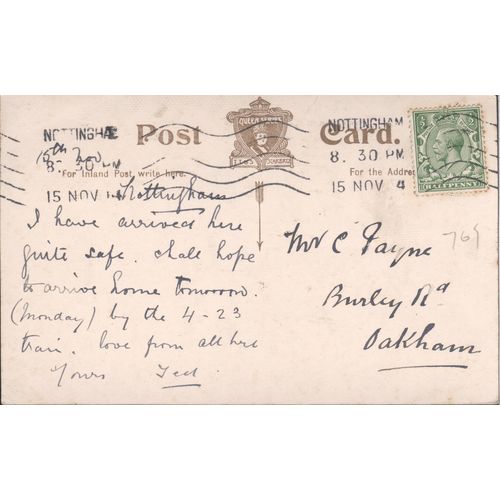 NOTTINGHAM
8. 30 PM
15 NOV 14
Post Card.
QUEEN SERIES
NOTTINGHAM
8. 30 PM
15 NOV 4
HALFPENNY
"For Inland Post, write here.
For the Address
15th Nov
Nottingham
I have arrived here
quite safe. shall hope
to arrive home tomorrow.
(Monday) by the 4-23
train. love from all here
Yours Ted
Mr C Payne
Burley Rd
Oakham
769